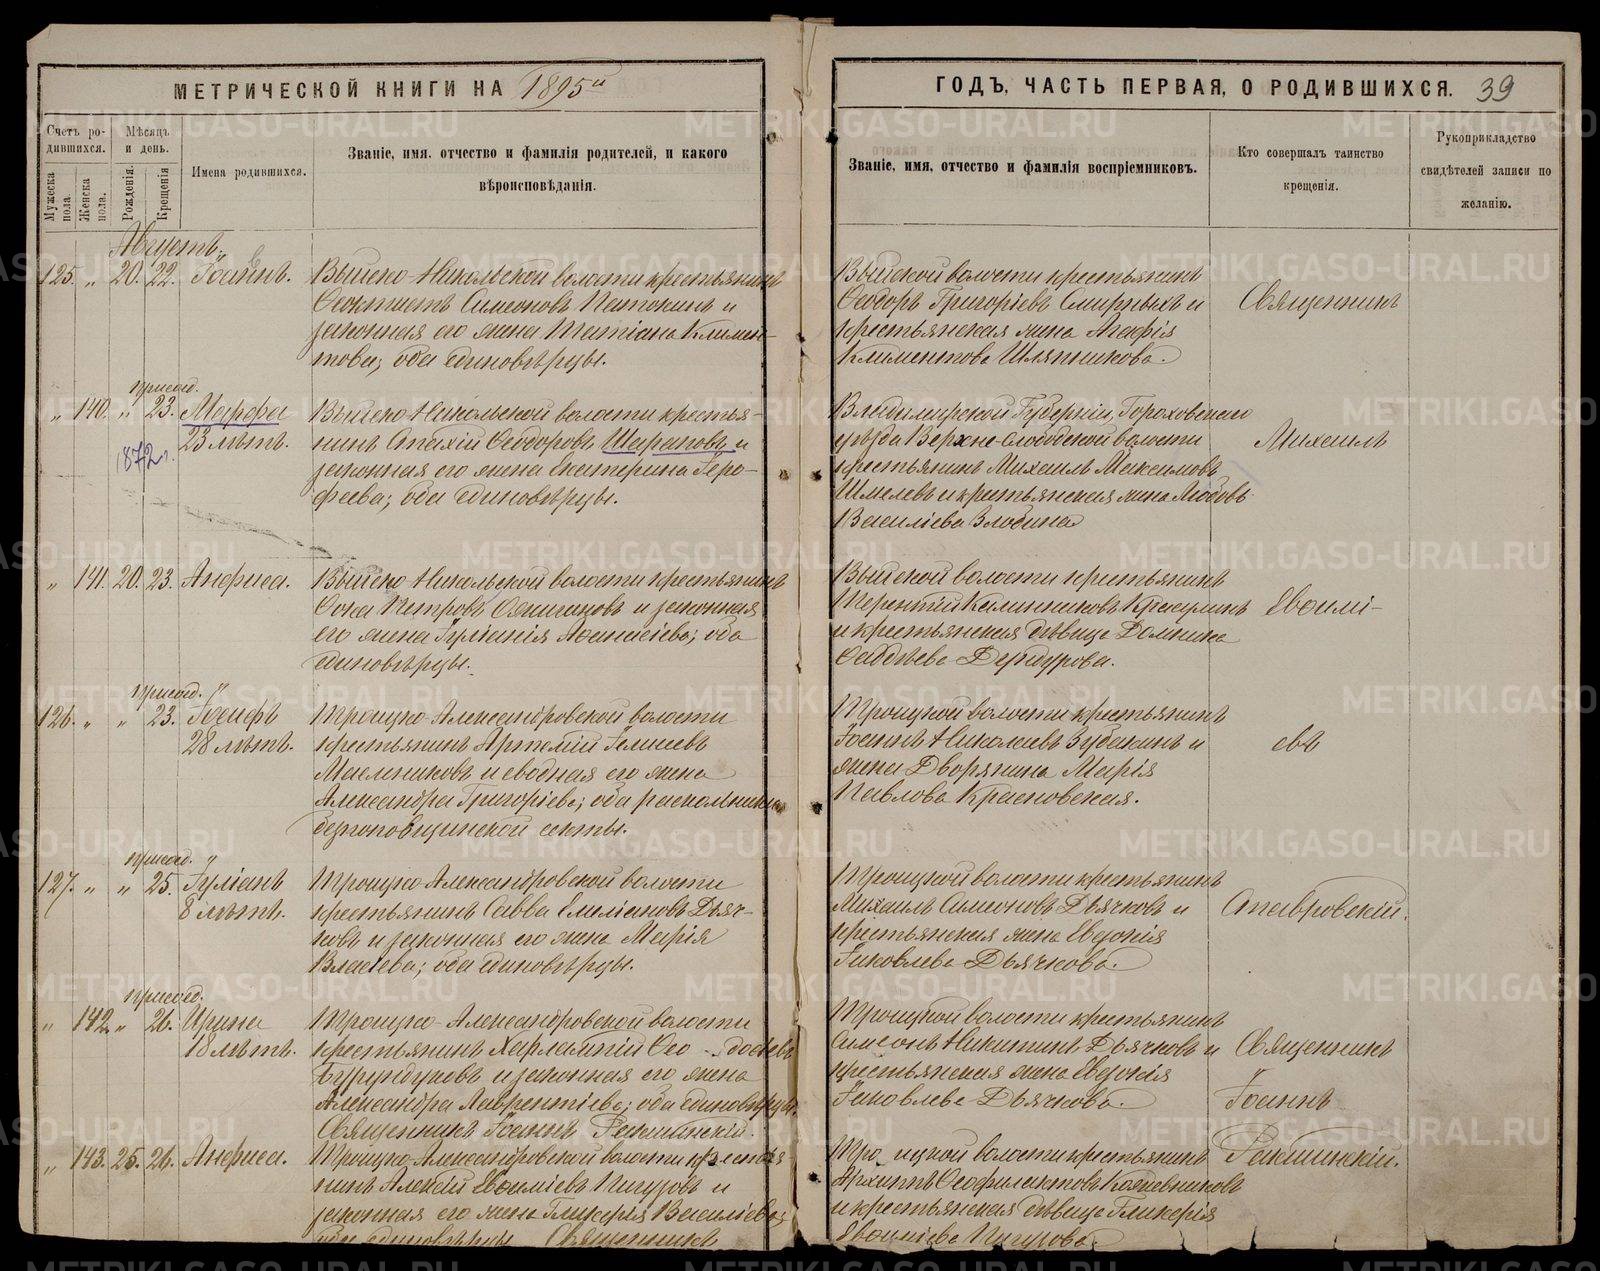 МЕТРИЧЕСКОЙ КНИГИ НА 1895й
ГОДЪ, ЧАСТЬ ПЕРВАЯ, О РОДИВШИХСЯ. 39
Счетъ родившихся.
Мужеска пола.
Женска пола.
Мѣсяцъ и день.
Рожденія.
Крещенія
Имена родившихся.
Званіе, имя, отчество и фамилія родителей, и какого
вѣроисповѣданія.
Званіе, имя, отчество и фамилія воспріемниковъ.
Кто совершалъ таинство
крещенія.
Рукоприкладство
свидѣтелей записи по
желанію.
Августъ
125. " 20. 22. Іоаннъ.
Выйско-Никольской волости крестьянинъ
Ѳеоктистъ Симеоновъ Патокинъ и
законная его жена Татіана Климен-
това; оба единовѣрцы.
Выйской волости крестьянинъ
Ѳеодоръ Григоріевъ Смирныхъ и
крестьянская жена Агафія
Климентова Шляпникова.
Священникъ
присоед.
" 140. " 23. Марфа
23 лѣтъ.
1872 г.
Выйско-Никольской волости крестья-
нинъ Ѳеодоровъ Шарановъ и
законная его жена Екатерина Геро-
феева; оба единовѣрцы.
Владимірской Губерніи, Гороховскаго
уѣзда Верхне-слободской волости
крестьянинъ Михаилъ Максимовъ
Шмелевъ и крестьянская жена Любовь
Василіева Злобина
Михаилъ
" 141. 20. 23. Анфиса.
Выйско-Никольской волости крестьянинъ
Ѳока Петровъ и законная
его жена Іуліанія Аѳанасіева; оба
единовѣрцы.
Выйской волости крестьянинъ
Терентій Калинниковъ
и крестьянская дѣвица Домника
Савваѣева
Евѳимі-
присоед.
126. " " 23. Іосифъ
28 лѣтъ.
Троицко-Александровской волости
крестьянинъ Артемій Елисеевъ
Масленниковъ и сводная его жена
Александра Григоріева; оба раскольники
безпоповщинской секты.
Троицкой волости крестьянинъ
Іоаннъ Николаевъ Зубакинъ и
жена Дворянина Марія
Павлова Красновская.
евъ
присоед.
127. " " 25. Іуліанъ
8 лѣтъ.
Троицко-Александровской волости
крестьянинъ Савва Емеліановъ Дьяч-
ковъ и законная его жена Марія
Власіева; оба единовѣрцы.
Троицкой волости крестьянинъ
Михаилъ Симеоновъ Дьячковъ и
крестьянская жена Евдокія
Іаковлева Дьячкова.
Ставровскій.
присоед.
" 142. " 26. Ирина
18 лѣтъ.
Троицко-Александровской волости
крестьянинъ Харлампій Ѳео-досіевъ
Бурундуковъ и законная его жена
Александра Лаврентіева; оба единовѣрцы.
Священникъ Іоаннъ
Троицкой волости крестьянинъ
Симеонъ Никитинъ Дьячковъ и
крестьянская жена Евдокія
Іаковлева Дьячкова.
Священникъ
Іоаннъ
" 143. 25. 26. Анфиса.
Троицко-Александровской волости крестья
нинъ Алексій Евѳиміевъ Пигузовъ и
законная его жена Гликерія Василіева
оба единовѣрцы. Священникъ
Троицкой волости крестьянинъ
Архиппъ Ѳеофилактовъ Кожевниковъ
и крестьянская дѣвица Гликерія
Евѳиміева Пигузова
METRIKI.GASO-URAL.RU